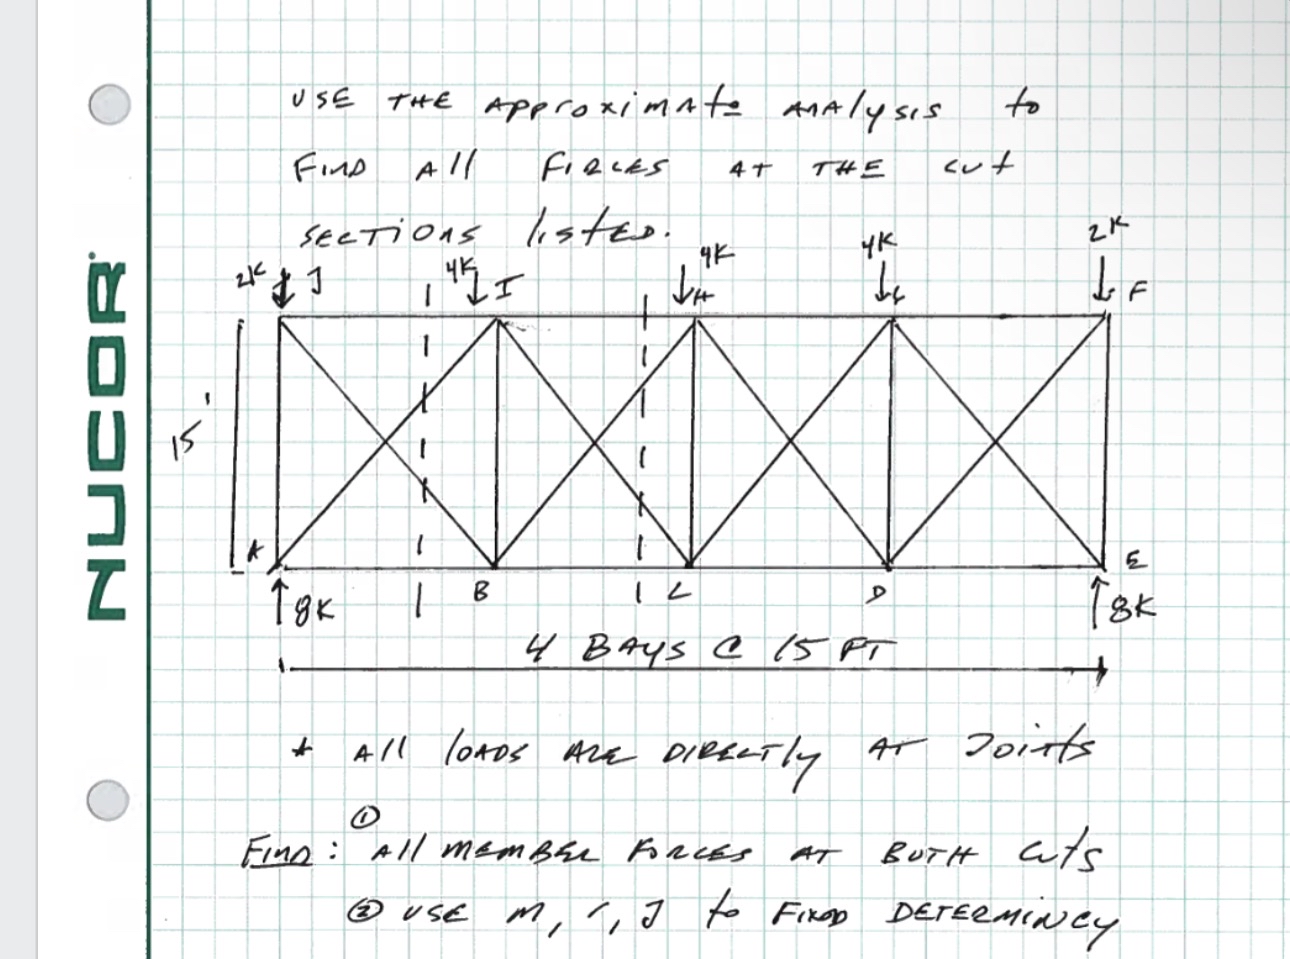 USE THE APProximAte ANAlysis to
FIND All FORCES AT THE cut
SECTIONS listED.
2K J 4K I 4K H 4K G 2K F
15'
A B C D E
8K 8K
4 BAYS @ 15 FT
* All loADS ARE DIRECTly AT JOINTS
①
FIND: All MEMBER FORCES AT BOTH CUTS
② USE M, r, J to FIND DETERMINCY
NUCOR